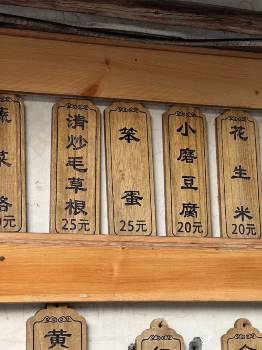 蔬菜洛
清炒毛草根
25元
笨蛋
25元
小磨豆腐
20元
花生米
20元
黄